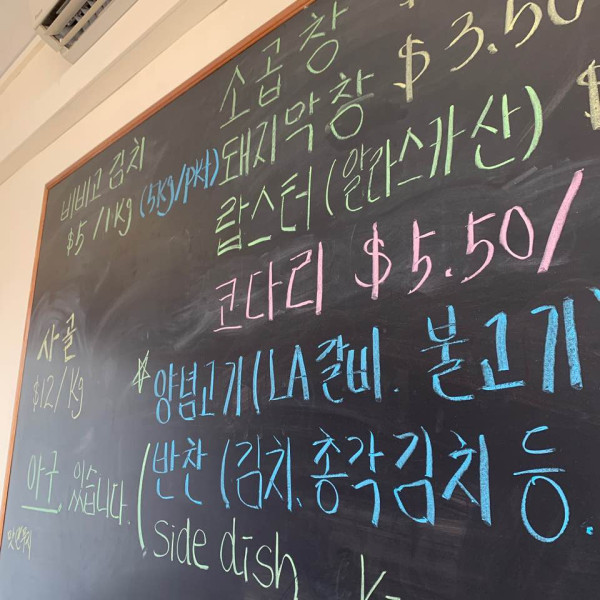 비비고 김치
$5 /1kg (5kg/pkt)
사골
$12/kg
아구 있습니다.
소곱창 $3.50
돼지막창 $
랍스터 (알라스카산)
코다리 $5.50/
양념고기 (LA갈비. 불고기
반찬 (김치. 총각김치 등.
side dish